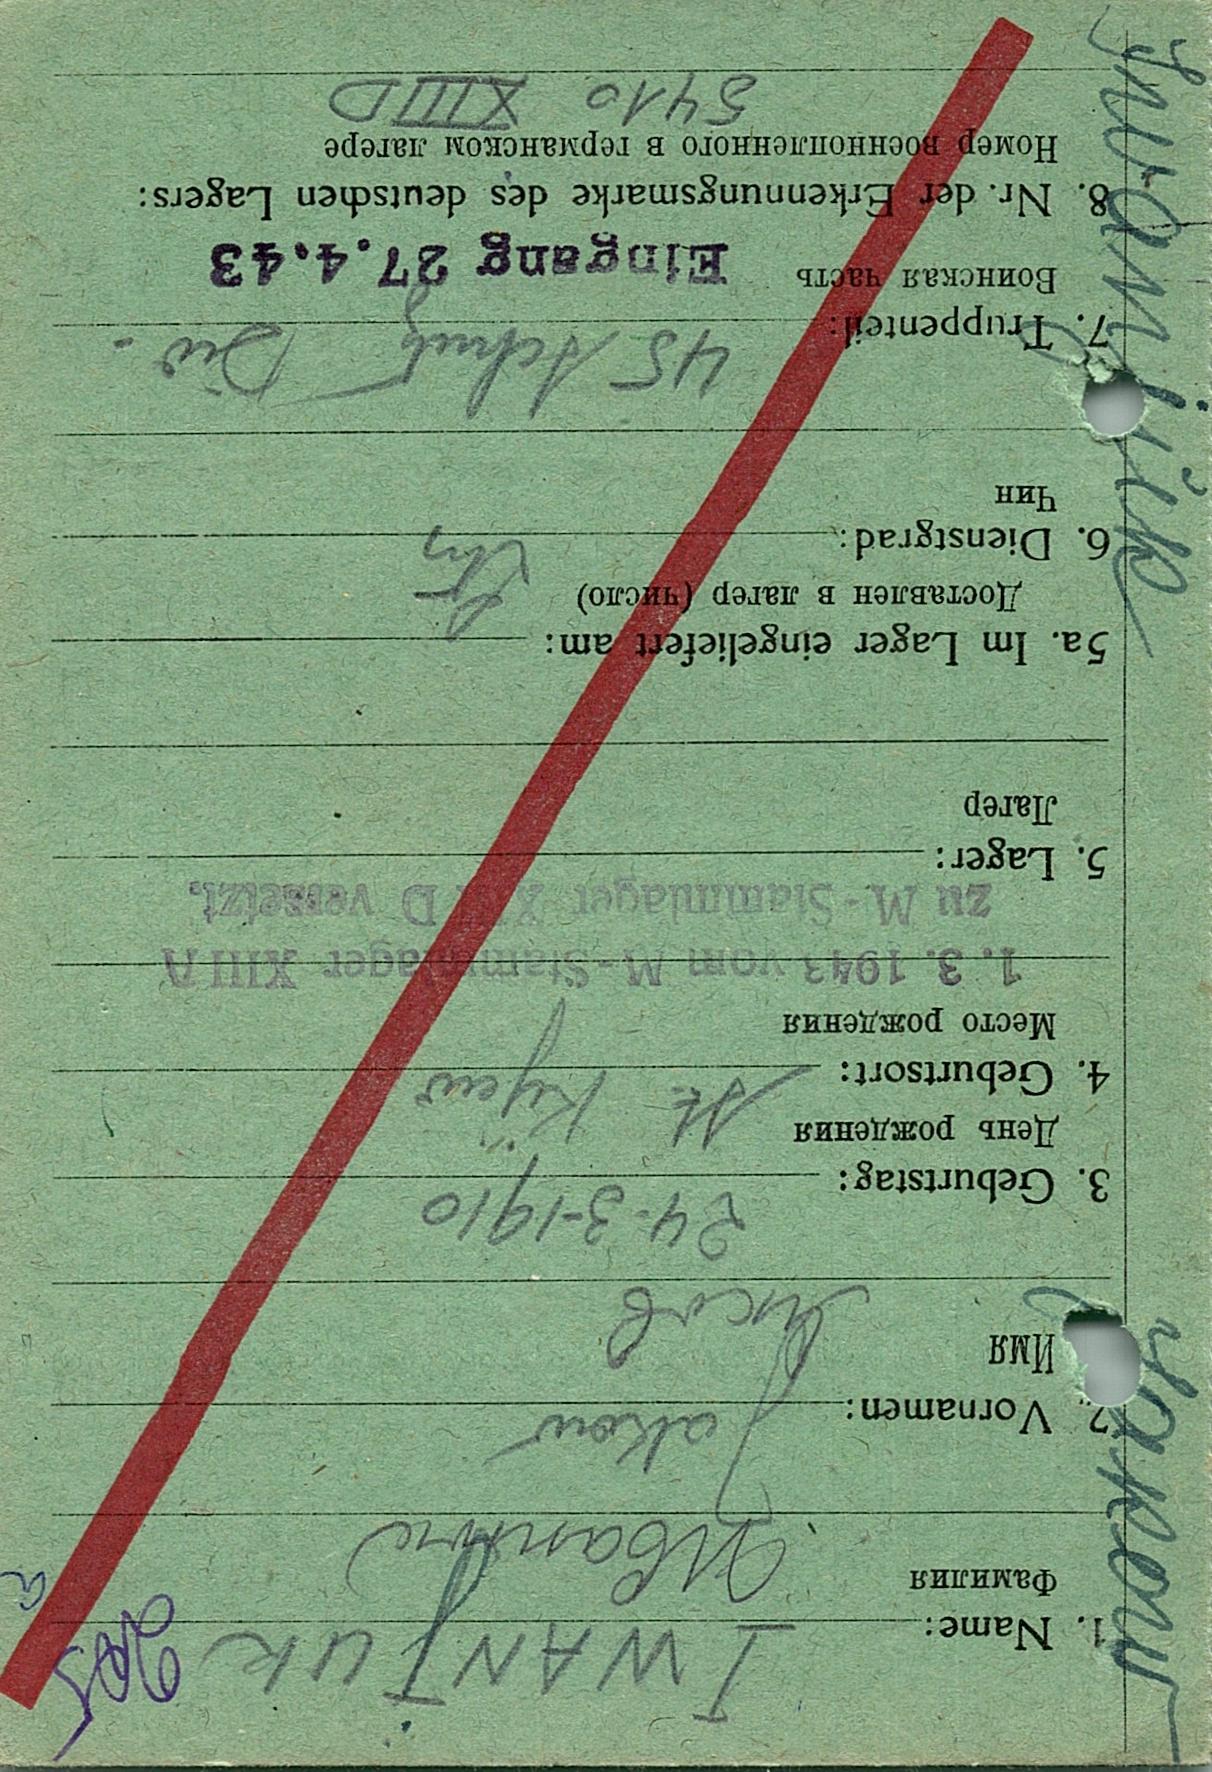 1. Name: IWANJUK
Фамилия
2. Vornamen: Jakow
Имя
Яков
3. Geburtstag: 24-3-1910
День рождения
4. Geburtsort: Kijew
Место рождения
1. 3. 1943 vom M-Stammlager XIII A
zu M-Stammlager XIII D versetzt.
5. Lager:
Лагер
5a. Im Lager eingeliefert am:
Доставлен в лагер (число)
6. Dienstgrad:
Чин
7. Truppenteil: 45 Schütz Div.-
Воинская часть
Eingang 27.4.43
8. Nr. der Erkennungsmarke des deutschen Lagers:
Номер военнопленного в германском лагере
5410 XIIID
Jakow Iwanjuk